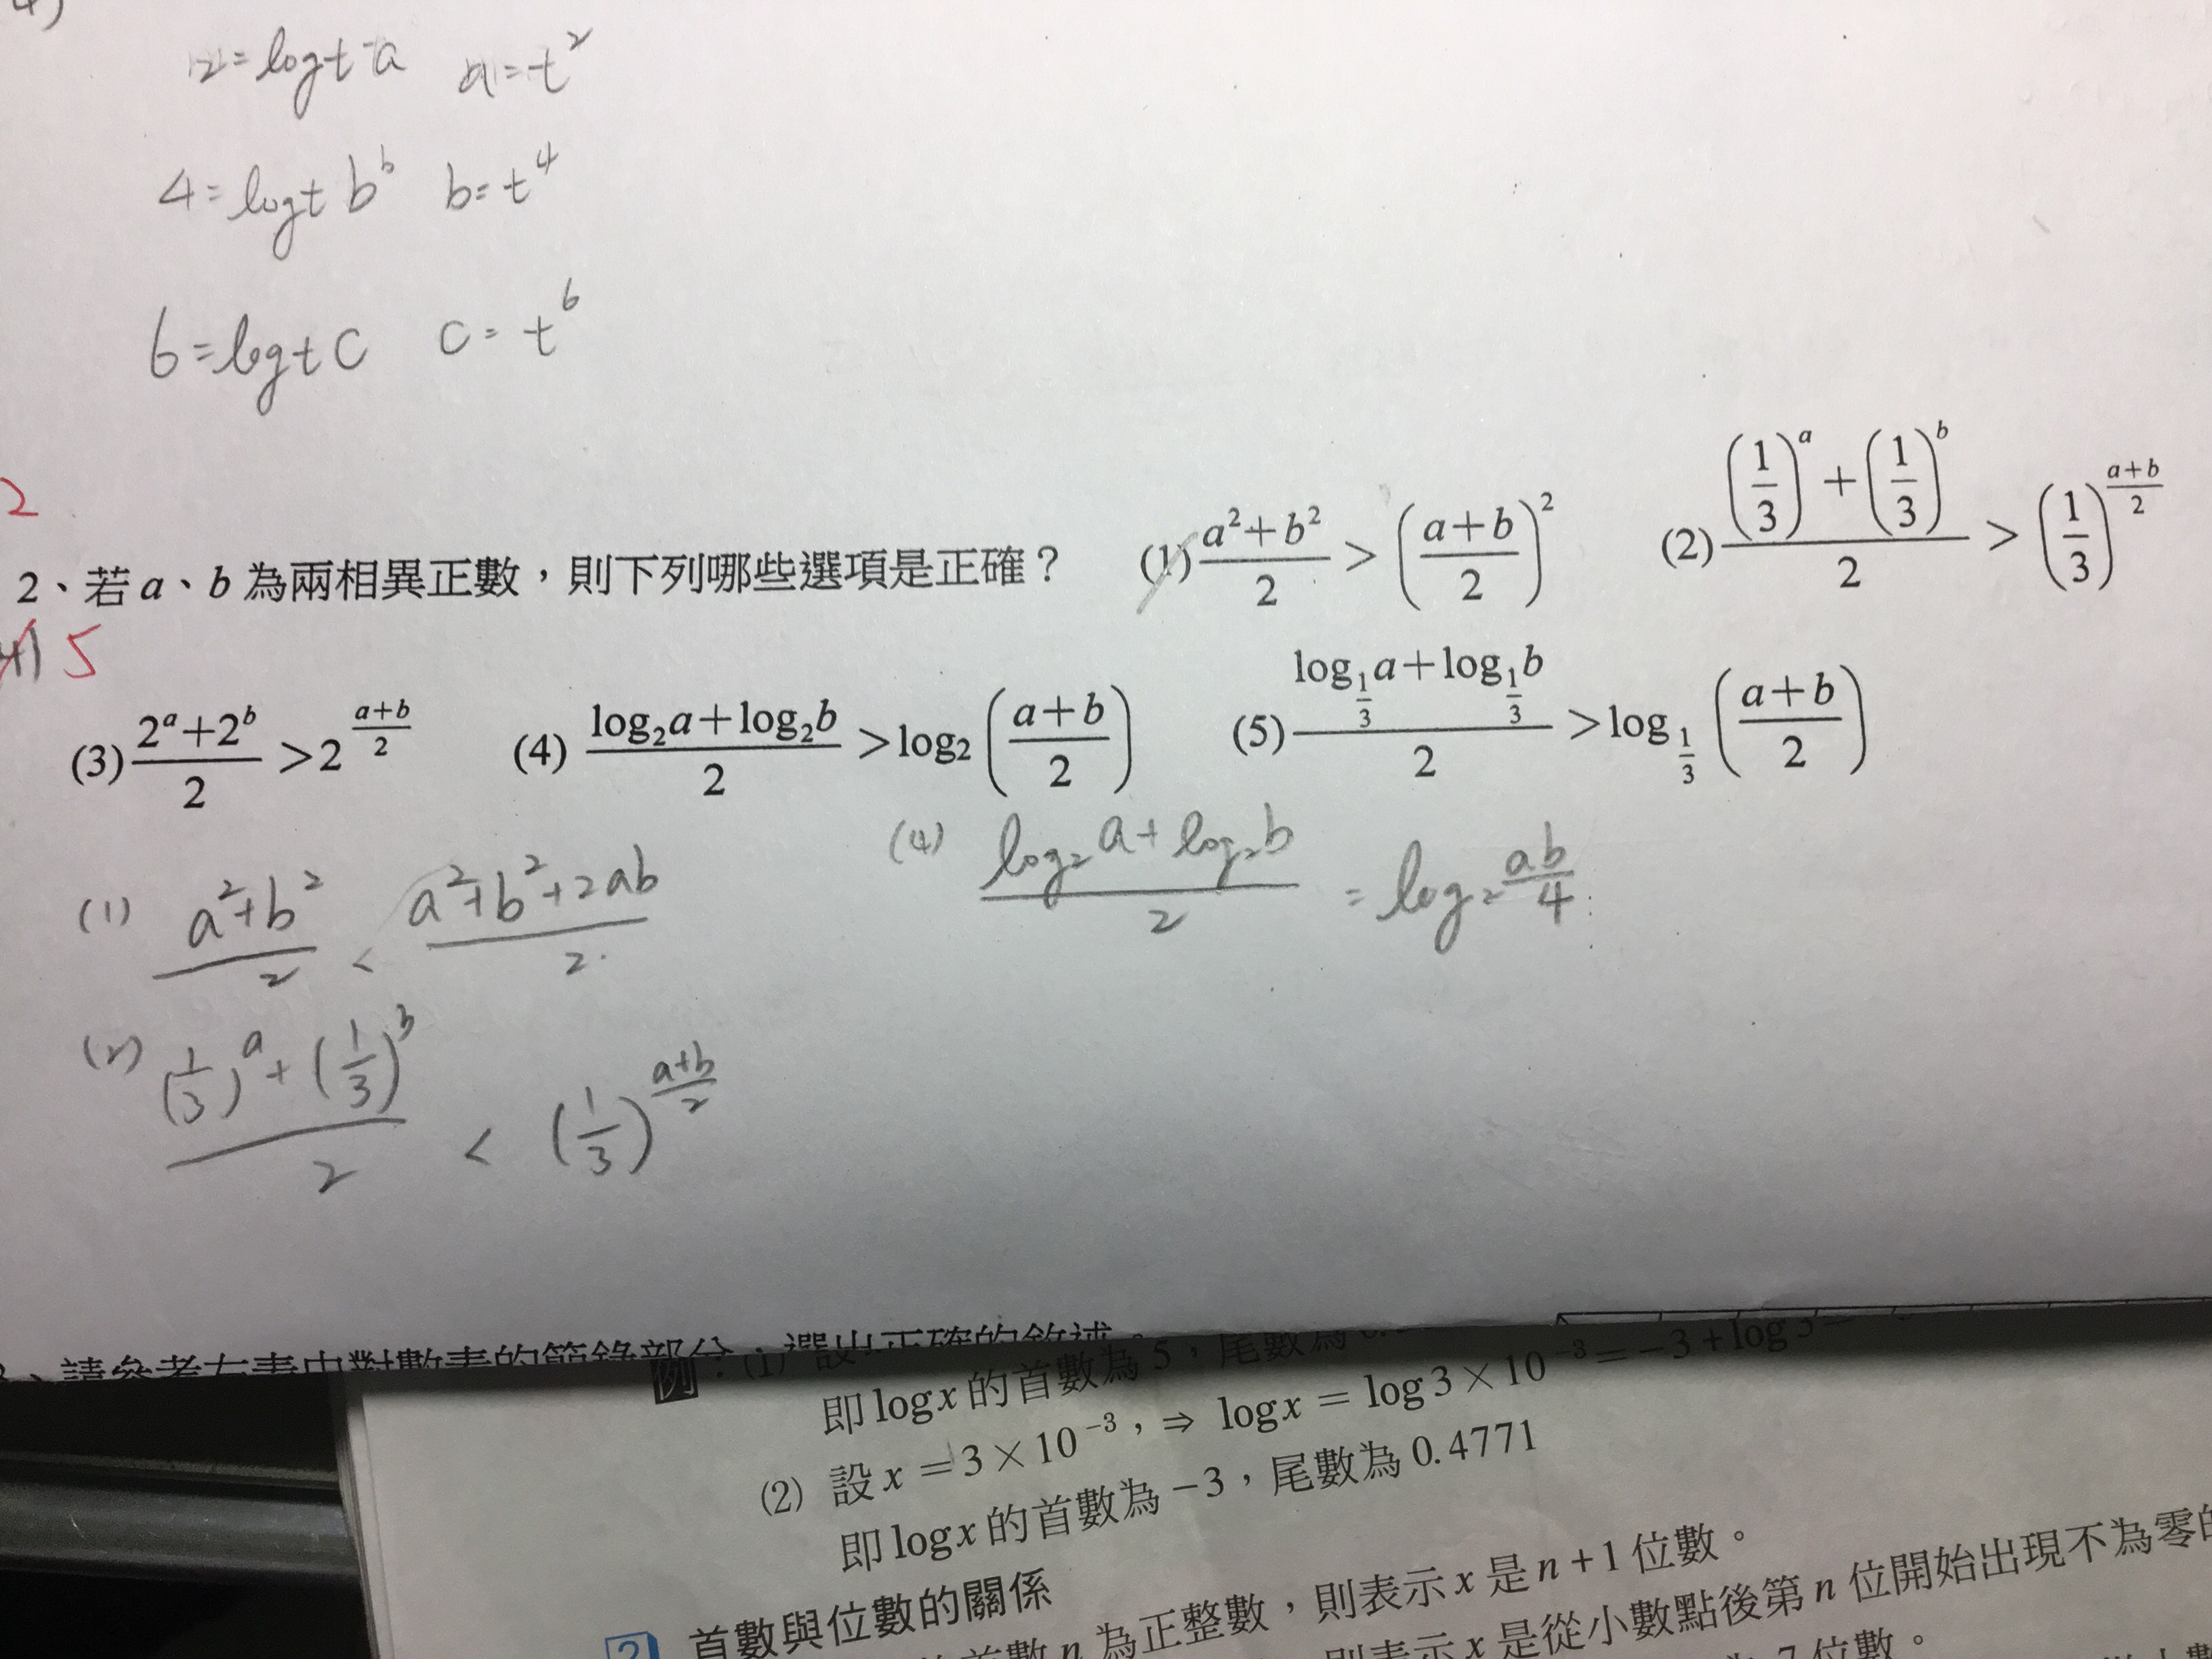 4)
2=log_t a a=t²
4=log_t b b=t⁴
6=log_t c c=t⁶
2
2、若 a、b 為兩相異正數，則下列哪些選項是正確？ (1) (a²+b²)/2 > ((a+b)/2)² (2) ((1/3)^a + (1/3)^b)/2 > (1/3)^((a+b)/2)
4) 5
(3) (2^a+2^b)/2 > 2^((a+b)/2) (4) (log₂a+log₂b)/2 > log₂((a+b)/2) (5) (log_(1/3) a+log_(1/3) b)/2 > log_(1/3)((a+b)/2)
(1) (a²+b²)/2 < (a²+b²+2ab)/2
(4) (log₂a+log₂b)/2 = log₂ ab/4
(2) ((1/3)^a + (1/3)^b)/2 < (1/3)^((a+b)/2)
、請參考右表中對數表的節錄部分，選出正確的敘述。
例：(1)
即 log x 的首數為 5，尾數為
(2) 設 x = 3×10⁻³，⇒ log x = log 3×10⁻³ = −3 + log 3 =
即 log x 的首數為 −3，尾數為 0.4771
2 首數與位數的關係
首數 n 為正整數，則表示 x 是 n+1 位數。
則表示 x 是從小數點後第 n 位開始出現不為零的
7 位數。